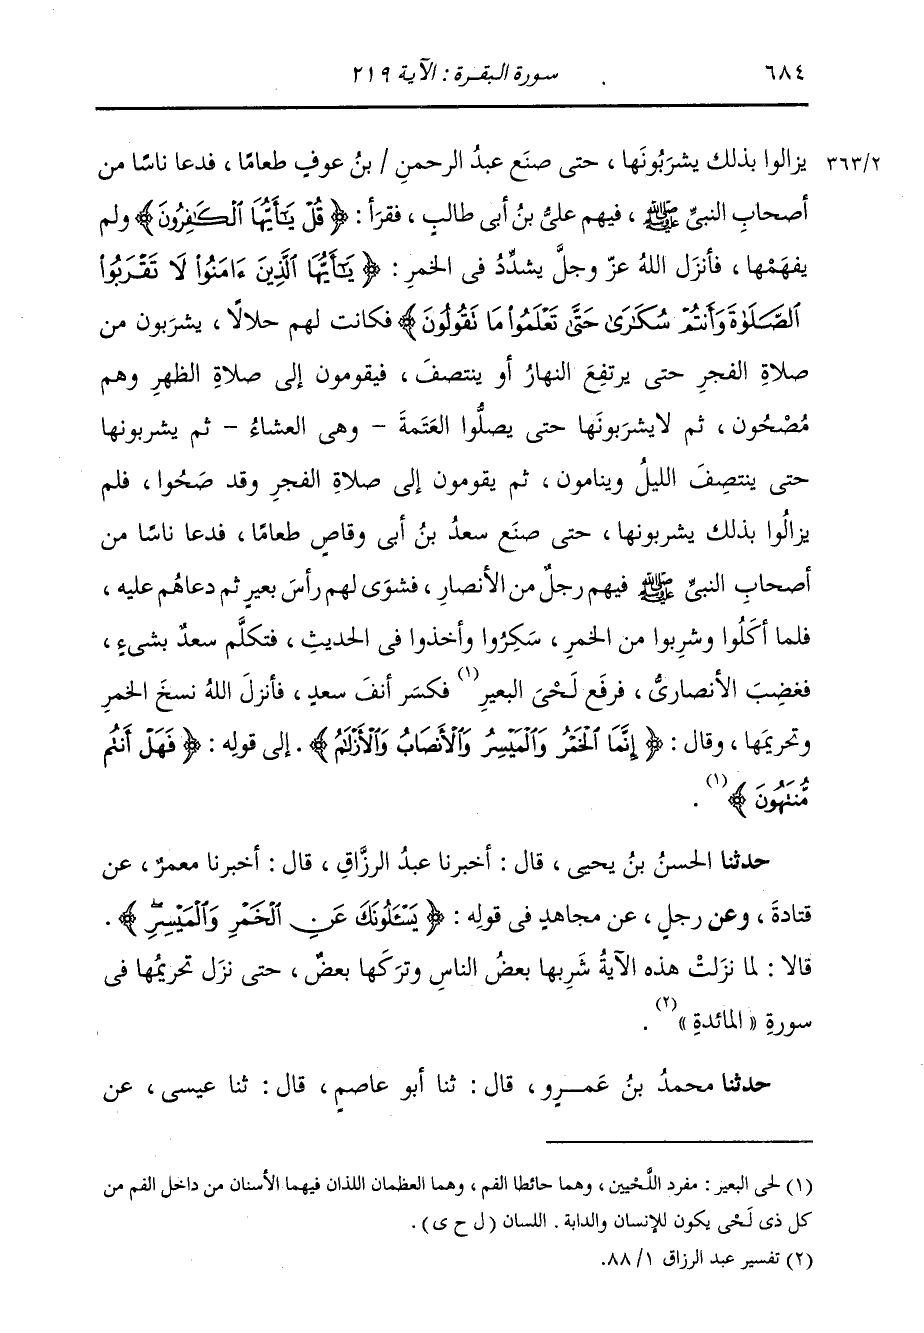 ٦٨٤ سورة البقرة : الآية ٢١٩
٣٦٣/٢ يزالوا بذلك يشرَبُونَها ، حتى صنَع عبدُ الرحمنِ / بنُ عوفٍ طعامًا ، فدعا ناسًا من
أصحابِ النبىِّ ﷺ ، فيهم علىُّ بنُ أبى طالبٍ ، فقرَأ : ﴿ قُلْ يَٰٓأَيُّهَا ٱلْكَٰفِرُونَ ﴾ ولم
يفهَمْها ، فأنزَل اللهُ عزّ وجلَّ يشدِّدُ فى الخمرِ : ﴿ يَٰٓأَيُّهَا ٱلَّذِينَ ءَامَنُوا۟ لَا تَقْرَبُوا۟
ٱلصَّلَوٰةَ وَأَنتُمْ سُكَٰرَىٰ حَتَّىٰ تَعْلَمُوا۟ مَا نَقُولُونَ ﴾ فكانت لهم حلالًا ، يشرَبون من
صلاةِ الفجرِ حتى يرتفِعَ النهارُ أو ينتصفَ ، فيقومون إلى صلاةِ الظهرِ وهم
مُصْحُون ، ثم لايشرَبونَها حتى يصلُّوا العَتَمةَ – وهى العشاءُ – ثم يشربونها
حتى ينتصِفَ الليلُ وينامون ، ثم يقومون إلى صلاةِ الفجرِ وقد صَحُوا ، فلم
يزالُوا بذلك يشربونها ، حتى صنَع سعدُ بنُ أبى وقاصٍ طعامًا ، فدعا ناسًا من
أصحابِ النبىِّ ﷺ فيهم رجلٌ من الأنصارِ ، فشوَى لهم رأسَ بعيرٍ ثم دعاهُم عليه ،
فلما أكَلُوا وشرِبوا من الخمرِ ، سَكِرُوا وأخذوا فى الحديثِ ، فتكلَّم سعدٌ بشىءٍ ،
فغضِبَ الأنصارىُّ ، فرفَع لَحْىَ البعيرِ(١) فكسَر أنفَ سعدٍ ، فأنزلَ اللهُ نسخَ الخمرِ
وتحريمَها ، وقال : ﴿ إِنَّمَا ٱلْخَمْرُ وَٱلْمَيْسِرُ وَٱلْأَنصَابُ وَٱلْأَزْلَٰمُ ﴾ . إلى قولِه : ﴿ فَهَلْ أَنتُم
مُّنتَهُونَ ﴾(١) .
حدثنا الحسنُ بنُ يحيى ، قال : أخبرنا عبدُ الرزَّاقِ ، قال : أخبرنا معمرٌ ، عن
قتادةَ ، وعن رجلٍ ، عن مجاهدٍ فى قولِه : ﴿ يَسْـَٔلُونَكَ عَنِ ٱلْخَمْرِ وَٱلْمَيْسِرِ ۖ ﴾ .
قالا : لما نزَلتْ هذه الآيةُ شَرِبها بعضُ الناسِ وترَكَها بعضٌ ، حتى نزَل تحريمُها فى
سورةِ « المائدةِ »(٢) .
حدثنا محمدُ بنُ عَمــرٍو ، قال : ثنا أبو عاصمٍ ، قال : ثنا عيسى ، عن
(١) لحى البعير : مفرد اللَّحْيين ، وهما حائطا الفم ، وهما العظمان اللذان فيهما الأسنان من داخل الفم من
كل ذى لَحْى يكون للإنسان والدابة . اللسان ( ل ح ى ) .
(٢) تفسير عبد الرزاق ١/ ٨٨.